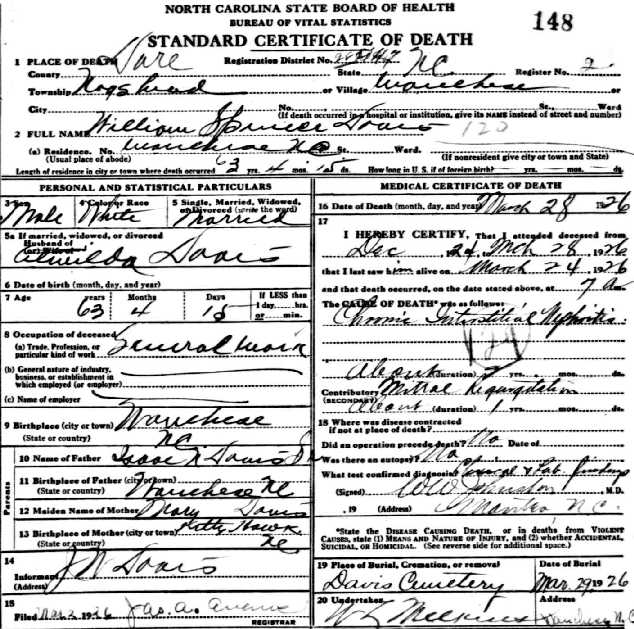 NORTH CAROLINA STATE BOARD OF HEALTH
BUREAU OF VITAL STATISTICS
STANDARD CERTIFICATE OF DEATH
148
1 PLACE OF DEATH Dare Registration District No. Register No. 2
County State NC
Township Nagshead or Village Wanchese or
City No. St., Ward
(If death occurred in a hospital or institution, give its NAME instead of street and number)
2 FULL NAME William Spencer Davis 120
(a) Residence. No. Wanchese NC St. Ward.
(Usual place of abode) (If nonresident give city or town and State)
Length of residence in city or town where death occurred 63 yrs. 4 mos. 15 ds. How long in U.S. if of foreign birth? yrs. mos. ds.
PERSONAL AND STATISTICAL PARTICULARS
3 Sex 4 Color or Race 5 Single, Married, Widowed, or Divorced (write the word)
Male White Married
5a If married, widowed, or divorced
Husband of
(or) Wife of Davis
6 Date of birth (month, day, and year)
7 Age years Months Days If LESS than
1 day hrs.
or min.
63 4 15
8 Occupation of deceased
(a) Trade, Profession, or
particular kind of work General work
(b) General nature of industry,
business, or establishment in
which employed (or employer)
(c) Name of employer
9 Birthplace (city or town) Wanchese
(State or country) NC
Parents
10 Name of Father Isaac Davis
11 Birthplace of Father (city or town)
(State or country) Wanchese NC
12 Maiden Name of Mother Mary Davis
13 Birthplace of Mother (city or town) Kitty Hawk
(State or country) NC
14
Informant J W Davis
(Address)
15
Filed 1926 Jas. A.
REGISTRAR
MEDICAL CERTIFICATE OF DEATH
16 Date of Death (month, day, and year) March 28 1926
17
I HEREBY CERTIFY, That I attended deceased from
Dec 24, Mch 28 1926
that I last saw him alive on March 24 1926
and that death occurred, on the date stated above, at 7 a m.
The CAUSE OF DEATH* was as follows:
Chronic Interstitial Nephritis
129
About (duration) yrs. mos. ds.
Contributory Mitral Regurgitation
(SECONDARY)
About (duration) 1 yrs. mos. ds.
18 Where was disease contracted
if not at place of death?
Did an operation precede death? No Date of
Was there an autopsy? No
What test confirmed diagnosis? findings
(Signed) W W Johnston M.D.
, 19 (Address) Manteo N.C.
*State the DISEASE CAUSING DEATH, or in deaths from VIOLENT
CAUSES, state (1) MEANS AND NATURE OF INJURY, and (2) whether ACCIDENTAL,
SUICIDAL, or HOMICIDAL. (See reverse side for additional space.)
19 Place of Burial, Cremation, or removal Date of Burial
Davis Cemetery Mar. 29, 1926
20 Undertaker Address
Wanchese N.C.